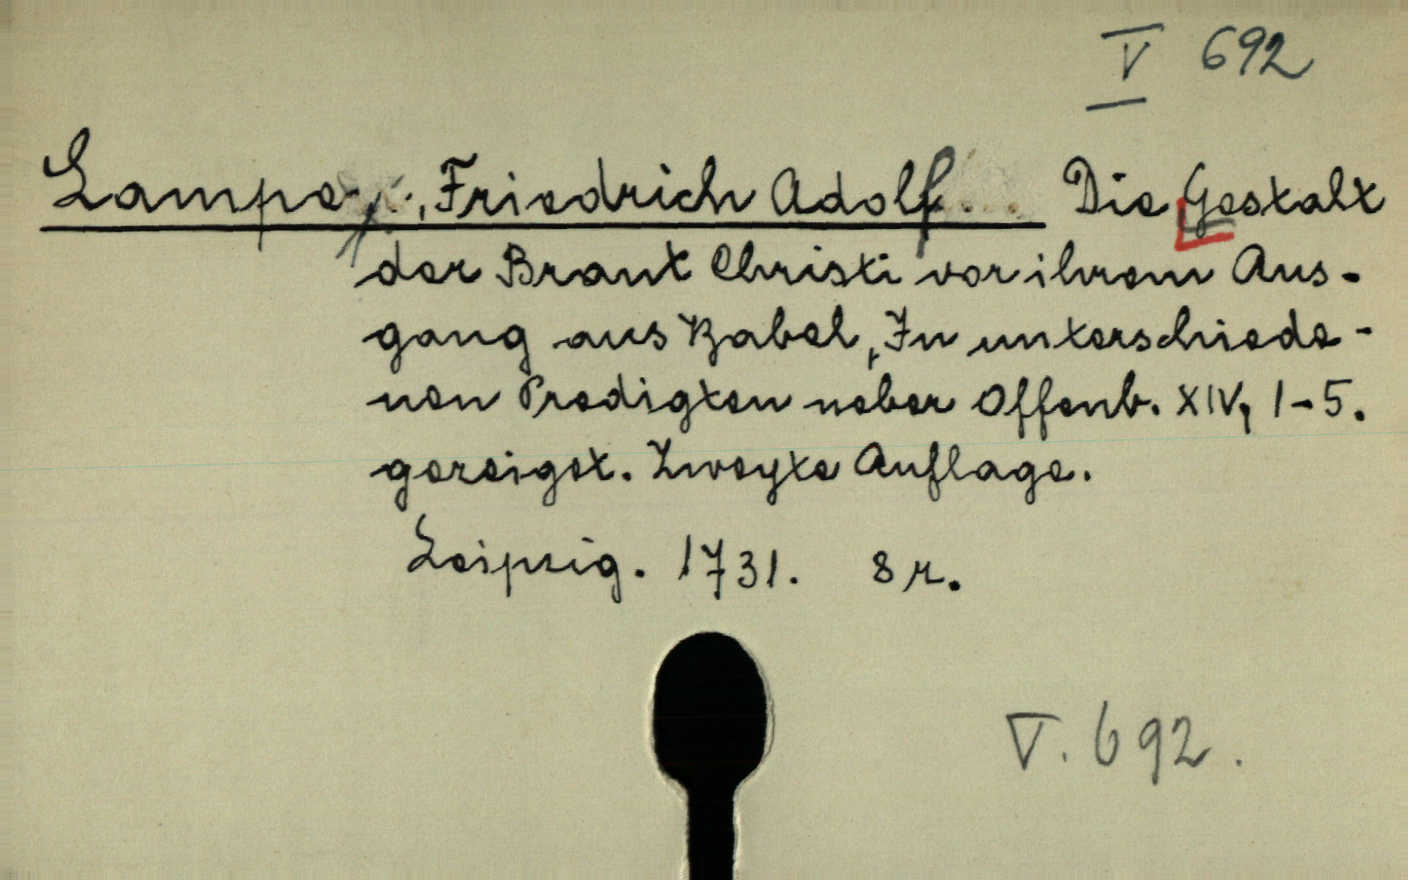 V 692
Lampe, Friedrich Adolf. Die Gestalt
der Braut Christi vor ihrem Aus-
gang aus Babel, In unterschiede-
nen Predigten ueber Offenb. XIV, 1-5.
gezeiget. Zweyte Auflage.
Leipzig. 1731. 8r.
V. 692.